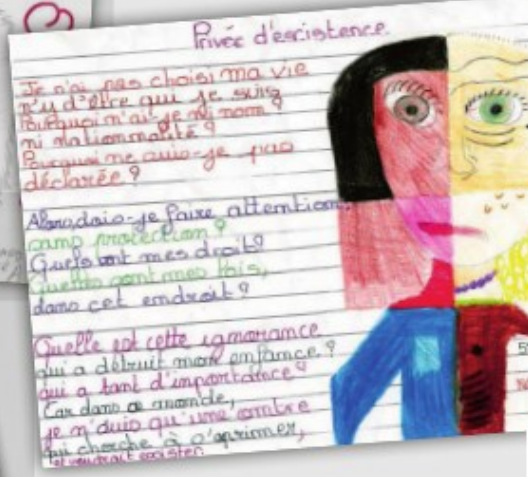 Privée d'escistence.
Je n'ai pas choisi ma vie
n'y d'être qui je suis
Pourquoi n'ai-je ni nom
ni nationnalité ?
Pourquoi ne suis-je pas
déclarée ?
Alors, dois-je faire attention,
sans protection ?
Quels sont mes droit ?
Quelles sont mes lois,
dans cet endroit ?
Quelle est cette ignorance
qui a détruit mon enfance ?
qui a tant d'importance ?
Car dans ce monde,
je n'suis qu'une ombre
qui cherche à s'exprimer,
et voudrait exister.